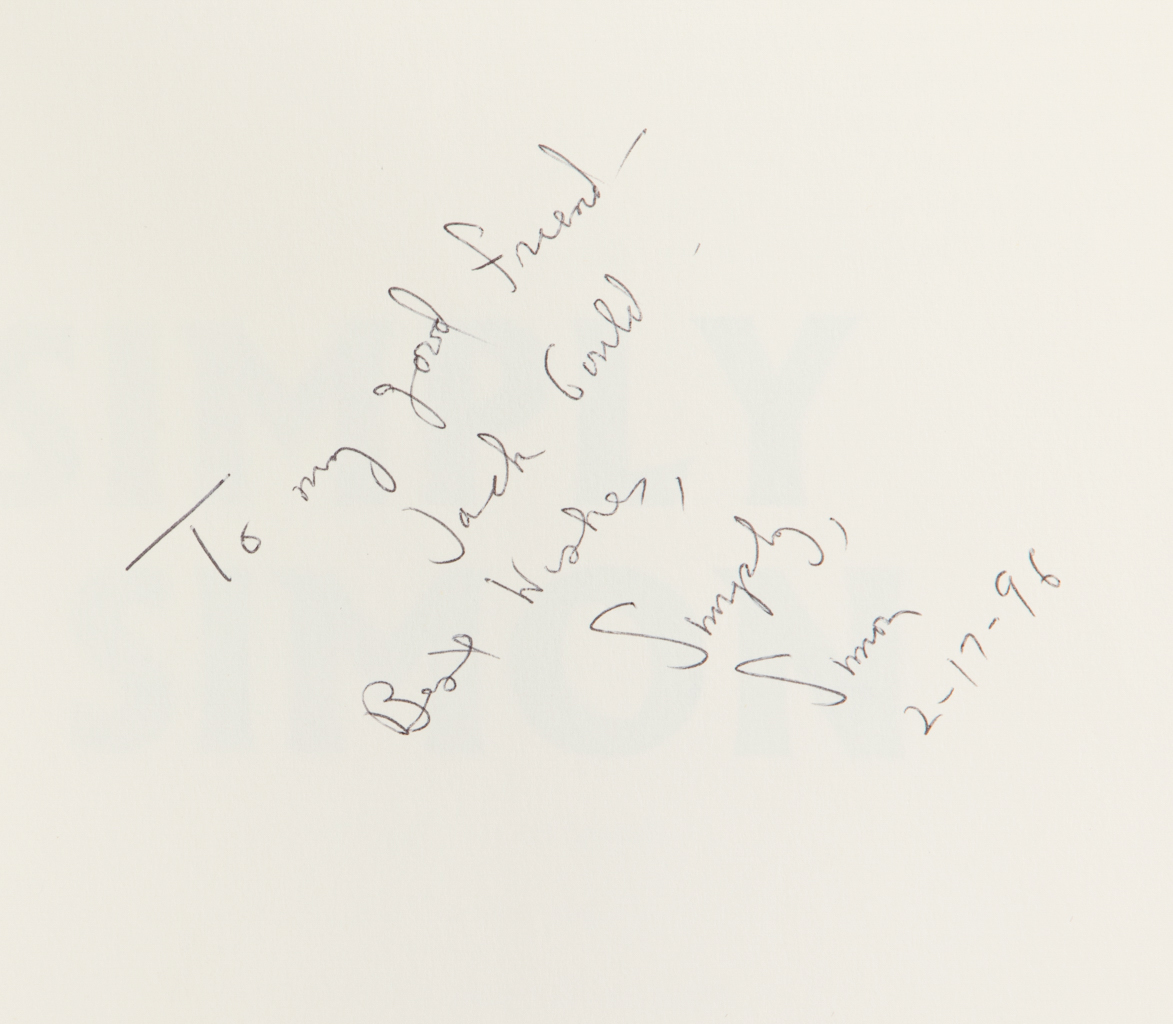 To my good friend -
Jack Gould -
Best Wishes,
Simply,
Simon
2-17-96
SIMPLY
SIMON